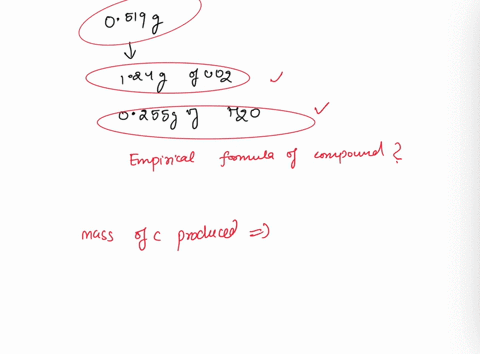 0.519g
1.24g of CO2
0.255g of H2O
Empirical formula of compound?
mass of C produced =>